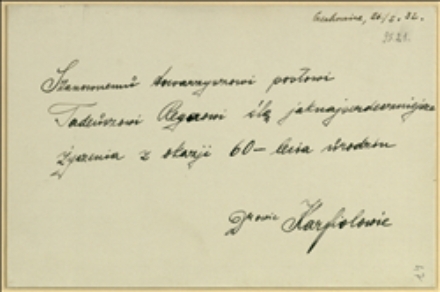 Czechowice, 26/2. 32.
Szanownemu towarzyszowi posłowi
Tadeuszowi Regerowi ślę jaknajserdeczniejsze
życzenia z okazji 60-lecia urodzin
Drowie Karfiolowie